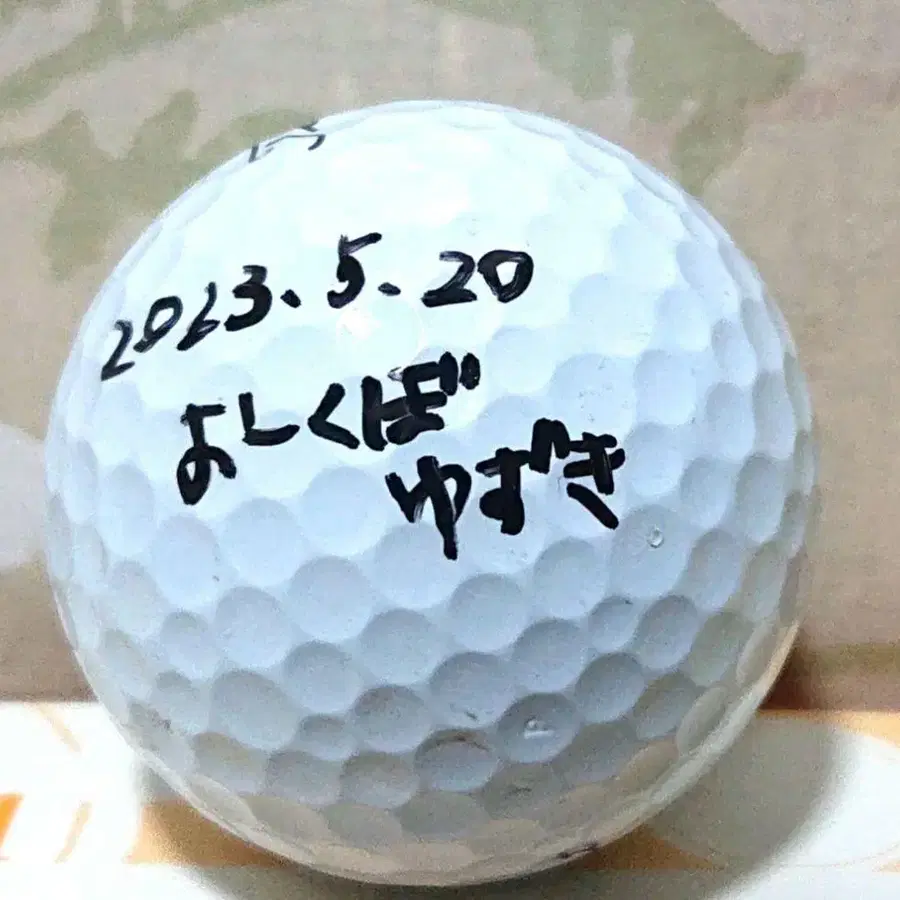 2023.5.20
よしくぼ
ゆずき